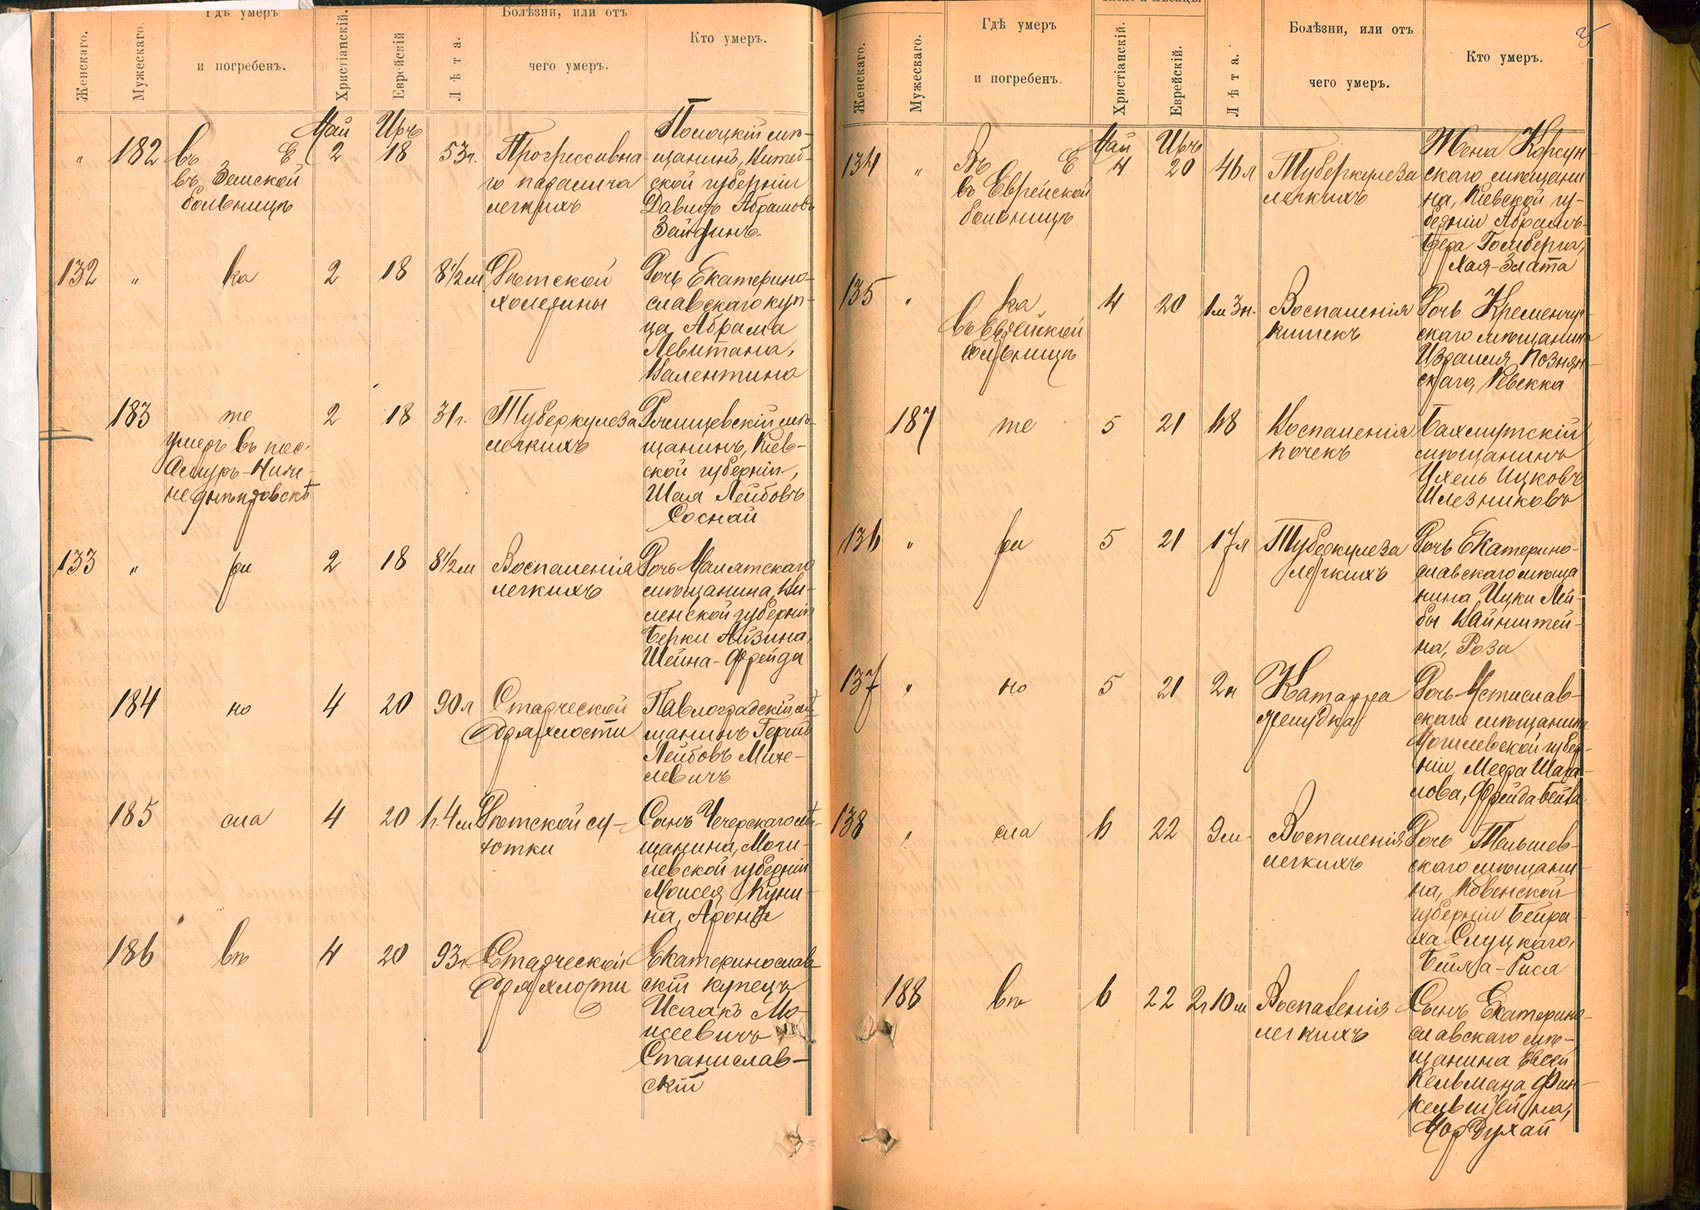 Женскаго.
Мужескаго
Гдѣ умеръ
и погребенъ.
Христіанскій.
Еврейскій
Лѣта.
Болѣзни, или отъ
чего умеръ.
Кто умеръ.
Май Иръ
„ 182 въ Е 2 18 53 г. Прогрессивна-
въ Земской
больницѣ
го паралича
легкихъ
Полоцкій мѣ-
щанинъ, Витеб-
ской губерніи
Давидъ Абрамовъ
132 „ ка 2 18 8½ м Дѣтской
холерины
Дочь Екатерино-
славскаго куп-
ца Абрама
Левитана,
Валентина
183 те 2 18 31 г. Туберкулеза
умеръ въ пос.
Амуръ-Ниж-
недѣпровскѣ
легкихъ
мѣ-
щанинъ, Кіев-
ской губерніи,
Шая Лейбовъ
133 „ ри 2 18 8½ м Воспаленія
легкихъ
Дочь
мѣщанина, Ви-
ленской губерніи
Берки Айзина,
Шейна-Фрейда
184 но 4 20 90 л Старческой
дряхлости
Павлоградскій мѣ
щанинъ
Лейбовъ Мине-
левичъ
185 сла 4 20 1 г. 4 м Дѣтской су-
хотки
Сынъ Чечерскаго мѣ-
щанина, Моги-
левской губерніи
Моисея Куни-
на, Аронъ
186 въ 4 20 93 л Старческой
дряхлости
Екатеринослав-
скій купецъ
Исаакъ Мо-
исеевичъ
Станислав-
скій
Женскаго.
Мужескаго.
Гдѣ умеръ
и погребенъ.
Христіанскій.
Еврейскій.
Лѣта.
Болѣзни, или отъ
чего умеръ.
Кто умеръ.
Май Иръ
134 „ Въ Е 4 20 46 л Туберкулеза
въ Еврейской
больницѣ
легкихъ
Жена Корсун-
скаго мѣщани
на, Кіевской гу-
берніи Абрамъ-
Бера Гомберга,
Хая-Злата
135 „ ка 4 20 1 м 3 н. Воспаленія
въ Еврейской
больницѣ
кишекъ
Дочь Кременчуг-
скаго мѣщанина
Израиля Познян-
скаго, Ревекка
187 те 5 21 48 Воспаленія
почекъ
Бахмутскій
мѣщанинъ
Ихель Ицковъ
Шлезниковъ
136 „ ри 5 21 17 л Туберкулеза
легкихъ
Дочь Екатерино-
славскаго мѣща
нина Ицки Лей-
бы Вайнштей-
на, Роза
137 „ но 5 21 2 н Катарра
желудка
Дочь Мстислав-
скаго мѣщанина
Могилевской губер-
ніи
лова, Фрейда Бейла
138 „ сла 6 22 9 м Воспаленія
легкихъ
Дочь Тельшев-
скаго мѣщани-
на, Ковенской
губерніи Бейра-
ха Слуцкаго,
Бейла-Риса
188 въ 6 22 2 г 10 м Воспаленія
легкихъ
Сынъ Екатерино-
славскаго мѣ-
щанина Евсей
Кельмана Фин-
кельштейна,
Мордухай